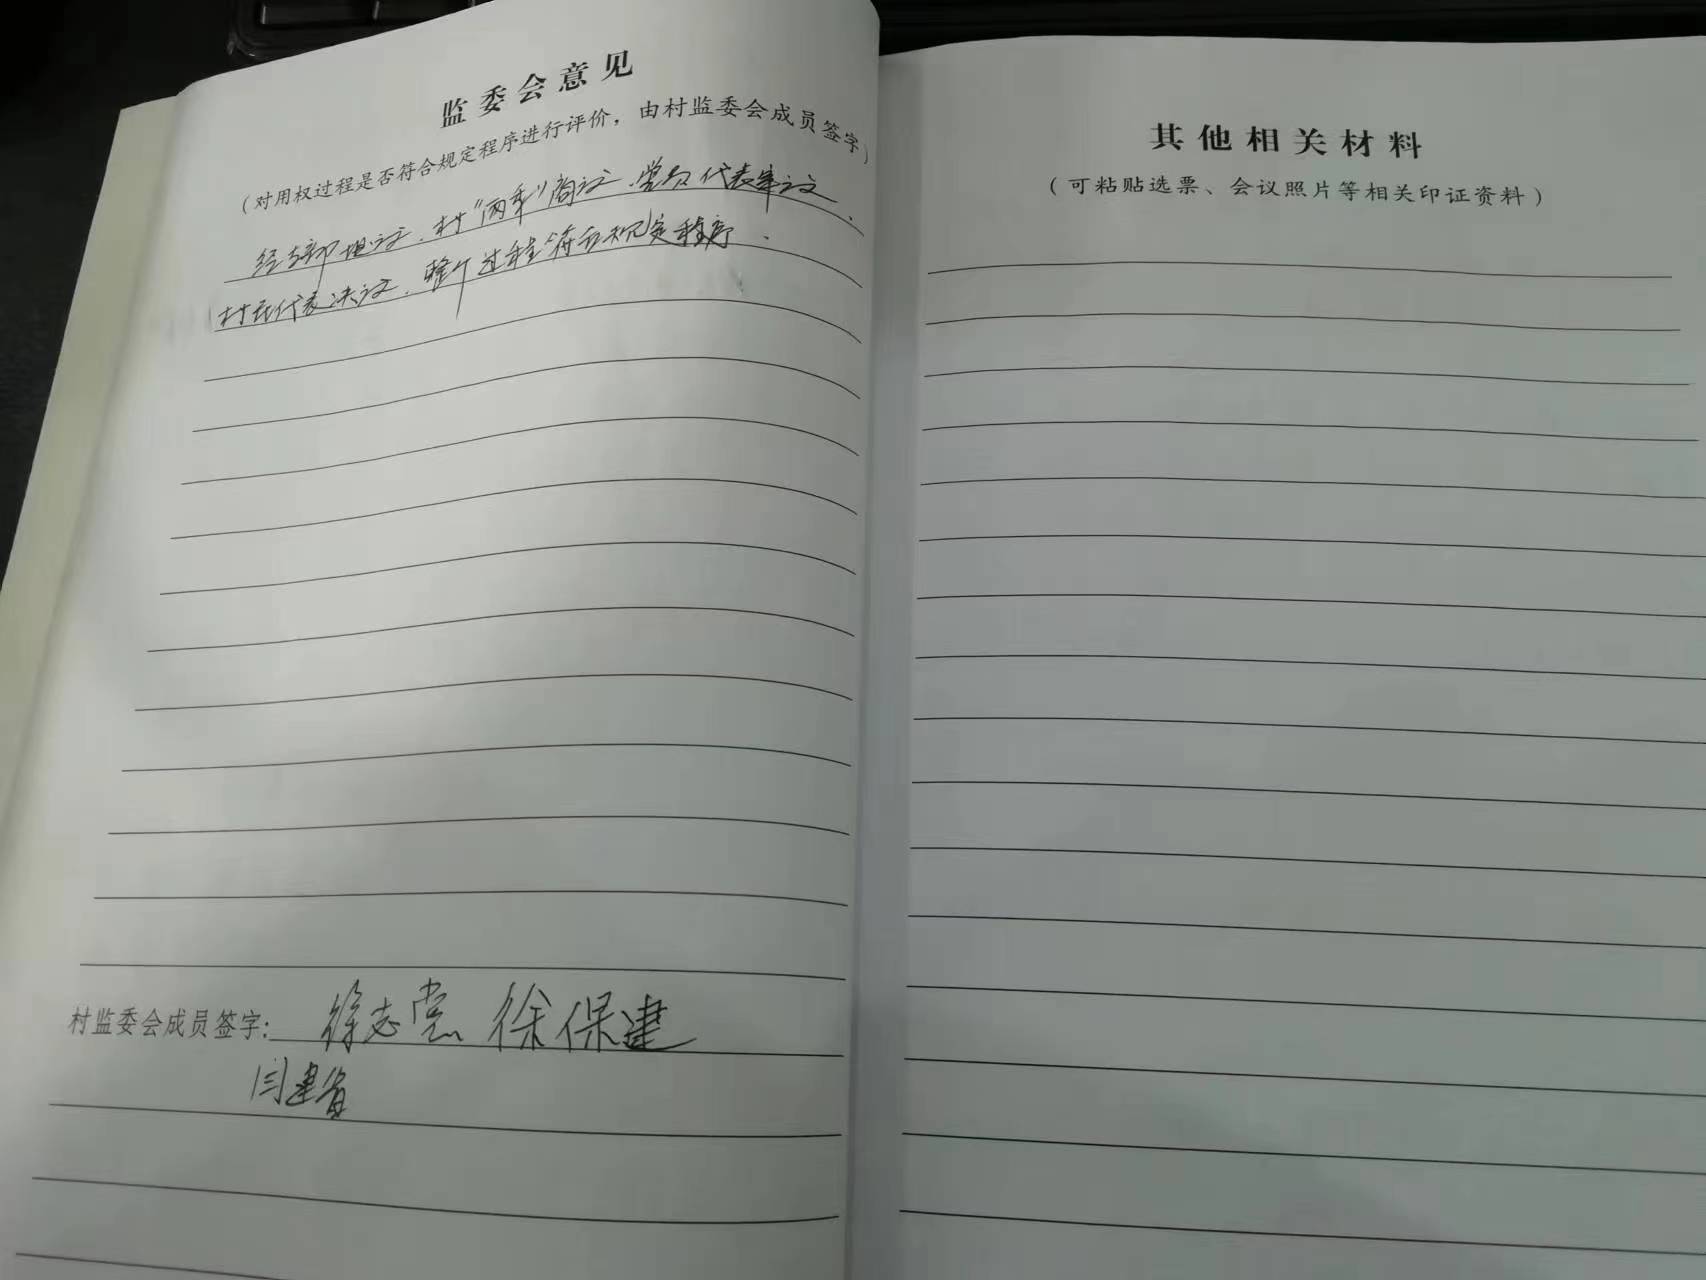 监委会意见
（对用权过程是否符合规定程序进行评价，由村监委会成员签字）
经支部提议、村“两委”商议、党员代表审议、
村民代表决议，整个过程符合规定程序.
村监委会成员签字：徐志党 徐保建
闫建省
其他相关材料
（可粘贴选票、会议照片等相关印证资料）